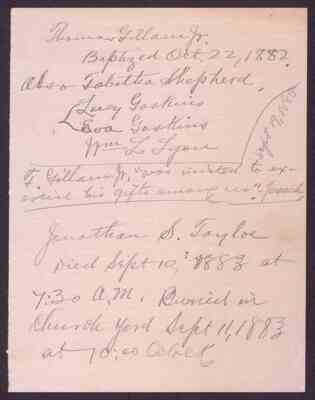 Thomas Gillam Jr.
Baptized Oct. 22, 1882.
Also Tabitha Shepherd,
Lucy Gaskins
Eva Gaskins
L. Lyon
Sept
T. Gillam Jr. "was invited to ex-
ercise his gifts among us." Preach
Jonathan S. Tayloe
Died Sept 10, 1883 at
7:30 A.M. Buried in
Church Yard Sept 11, 1883
at 10:00